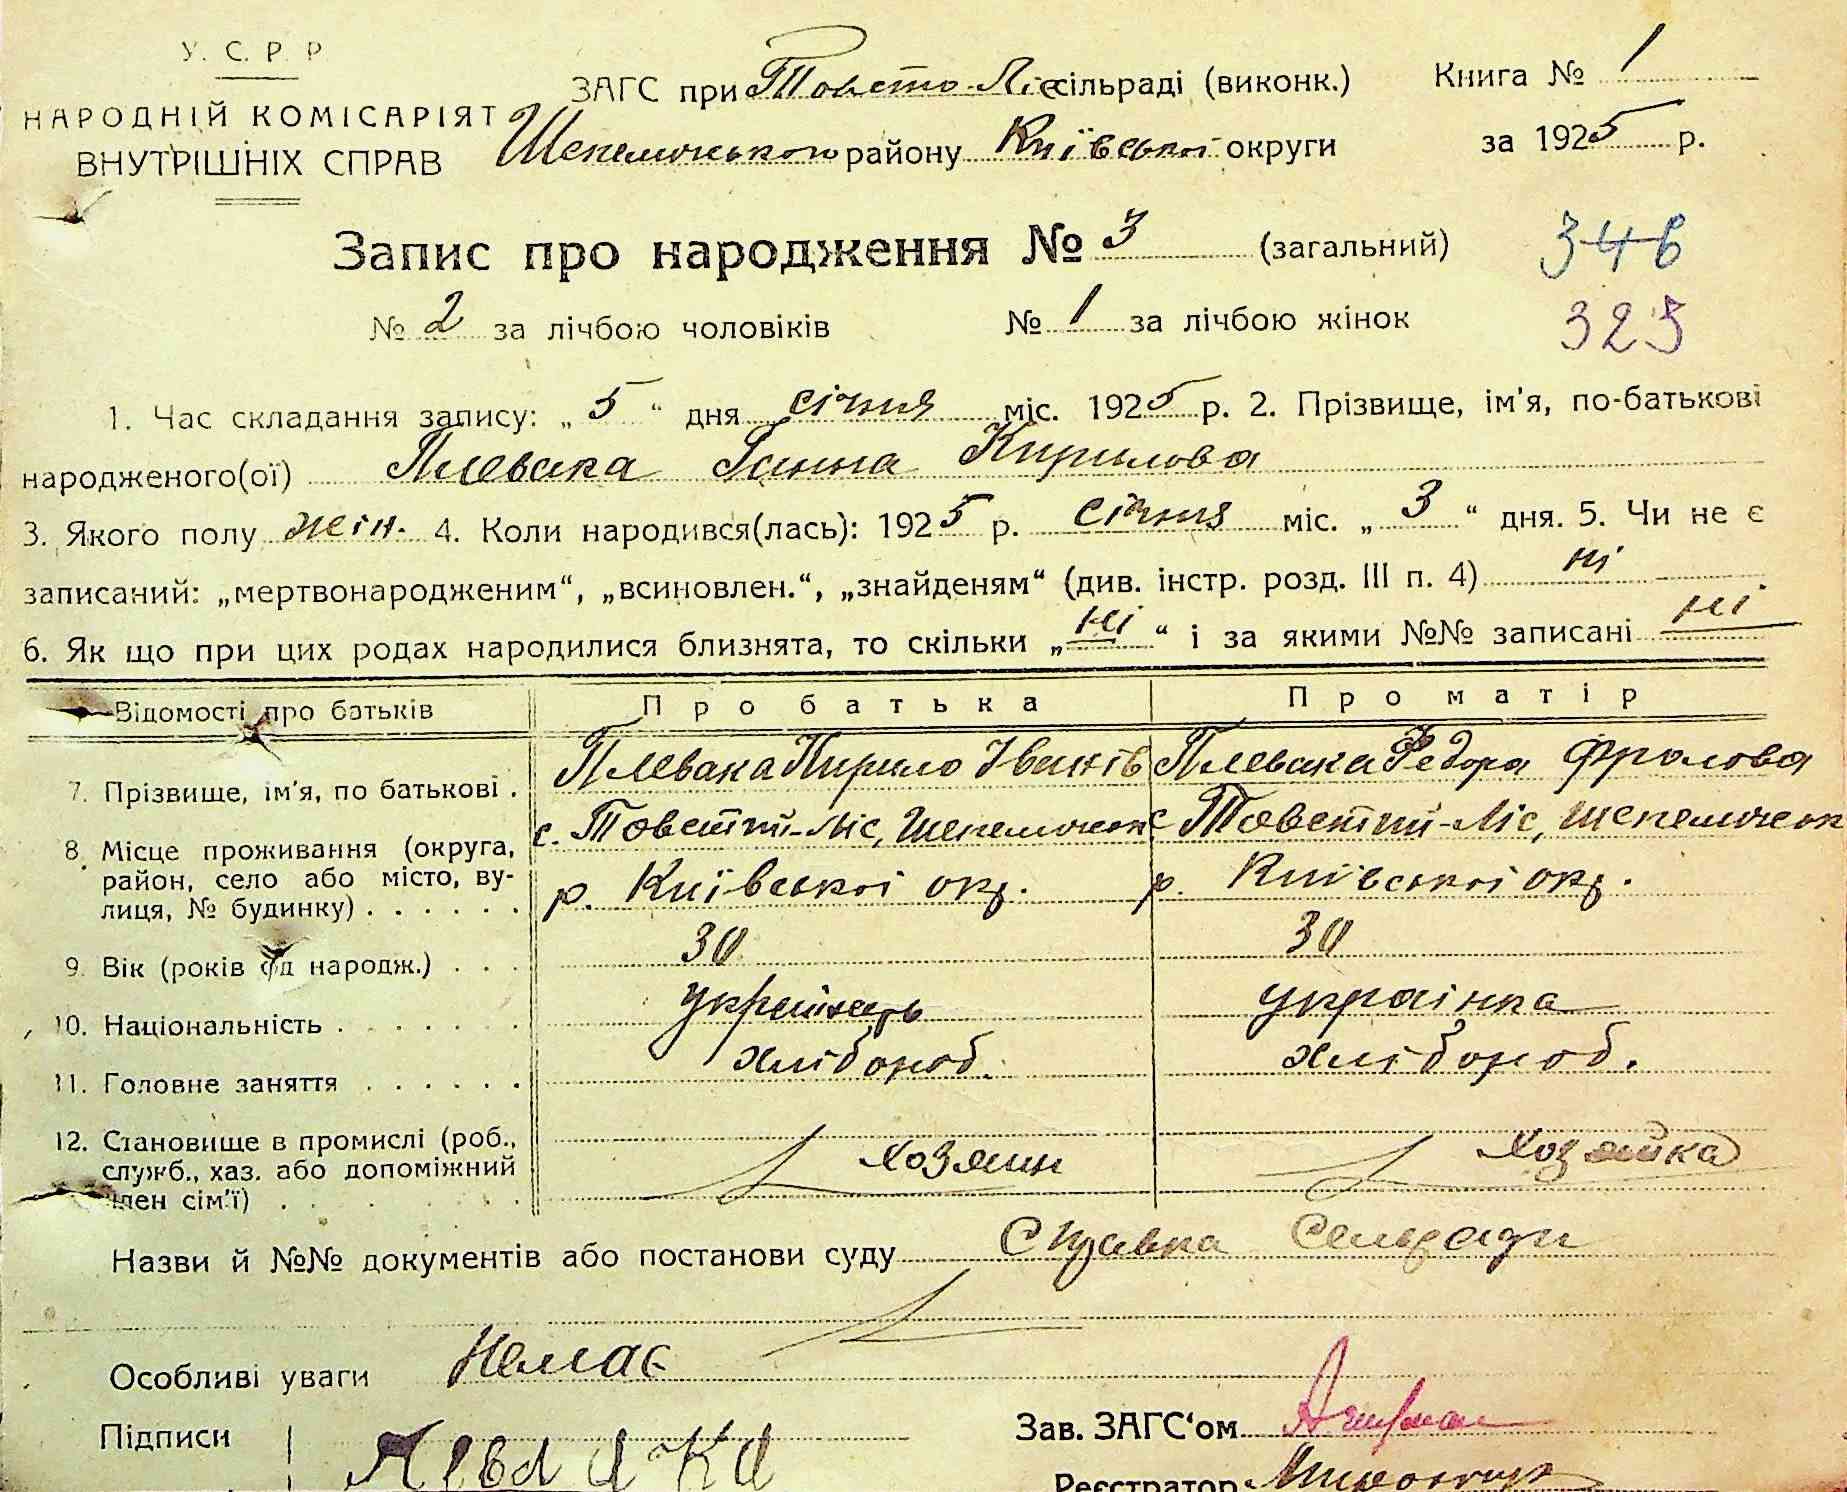 У.С.Р.Р
НАРОДНІЙ КОМІСАРІЯТ
ВНУТРІШНІХ СПРАВ
ЗАГС при Товсто-Ліс сільраді (виконк.) Книга № 1
Шепелицького району Київської округи за 1925 р.
Запис про народження № 3 (загальний) 346
№ 2 за лічбою чоловіків № 1 за лічбою жінок 325
1. Час складання запису: „5“ дня січня міс. 1925 р. 2. Прізвище, ім'я, по-батькові
народженого(ої) Плевака Ганна Кирилова
3. Якого полу жін. 4. Коли народився(лась): 1925 р. січня міс. „3“ дня. 5. Чи не є
записаний: „мертвонародженим“, „всиновлен.“, „знайденям“ (див. інстр. розд. III п. 4) ні
6. Як що при цих родах народилися близнята, то скільки „ні“ і за якими №№ записані ні
Відомості про батьків Про батька Про матір
7. Прізвище, ім'я, по батькові . Плевака Кирило Іванів Плевака Федора Фролова
8. Місце проживання (округа, с. Товстий-Ліс, с. Товстий-Ліс,
район, село або місто, ву- р. Київської окр. р. Київської окр.
лиця, № будинку) . . . . . .
9. Вік (років од народж.) . . . 30 30
10. Національність . . . . . . . українець українка
11. Головне заняття . . . . . . хлібороб. хлібороб.
12. Становище в промислі (роб., хозяин хозяйка
служб., хаз. або допоміжний
член сім'ї) . . . . . . .
Назви й №№ документів або постанови суду Справка Сельради
Особливі уваги Немає
Підписи Плевака Зав. ЗАГС'ом
Реєстратор